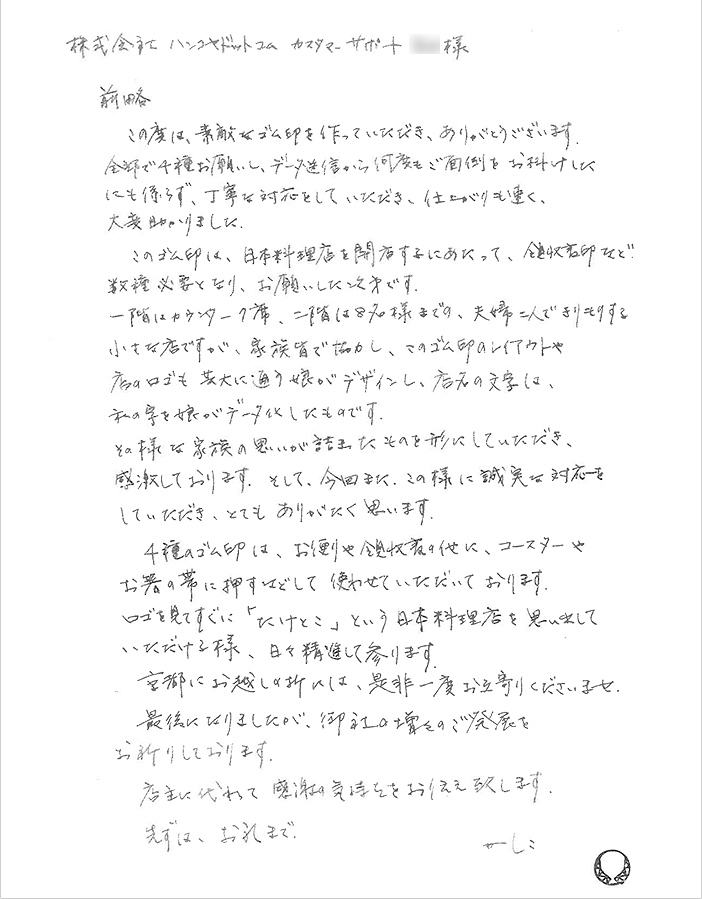 株式会社 ハンコヤドットコム カスタマーサポート 様
前略
この度は、素敵なゴム印を作っていただき、ありがとうございます.
全部で4種お願いし、データ送信から何度もご面倒をお掛けした
にも係らず、丁寧な対応をしていただき、仕上がりも速く、
大変助かりました.
このゴム印は、日本料理店を開店するにあたって、領収書印など
数種必要となり、お願いした次第です.
一階はカウンター7席、二階は8名様までの、夫婦二人できりもりする
小さな店ですが、家族皆で協力し、このゴム印のレイアウトや
店のロゴも芸大に通う娘がデザインし、店名の文字は、
私の字を娘がデータ化したものです.
その様な家族の思いが詰まったものを形にしていただき、
感激しております. そして、今回また、この様に誠実な対応を
していただき、とてもありがたく思います.
4種のゴム印は、お便りや領収書の他に、コースターや
お箸の帯に押すなどして使わせていただいております.
ロゴを見てすぐに「たけとこ」という日本料理店を思い出して
いただける様、日々精進して参ります.
京都にお越しの折には、是非一度お立寄りくださいませ.
最後になりましたが、御社の増々のご発展を
お祈りしております.
店主に代わって感謝の気持ちをお伝え致します.
先ずは、お礼まで.
かしこ